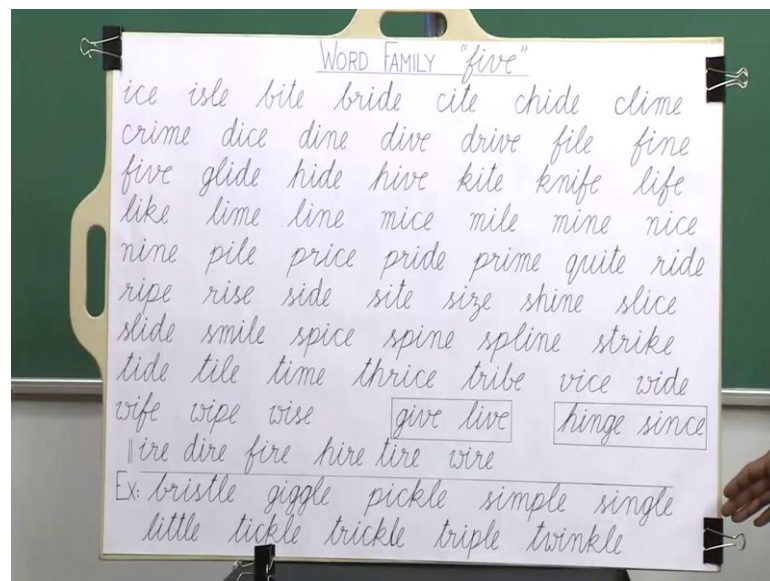 WORD FAMILY "five"
ice isle bite bride cite chide clime
crime dice dine dive drive file fine
five glide hide hive kite knife life
like lime line mice mile mine nice
nine pile price pride prime quite ride
ripe rise side site size shine slice
slide smile spice spine spline strike
tide tile time thrice tribe vice wide
wife wipe wise give live hinge since
ire dire fire hire tire wire
Ex: bristle giggle pickle simple single
little tickle trickle triple twinkle